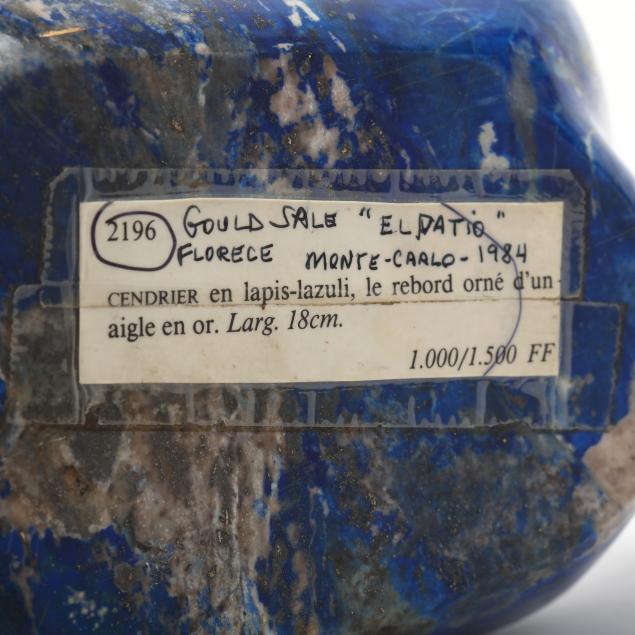 2196 GOULD SALE "EL PATIO"
FLORECE MONTE-CARLO - 1984
CENDRIER en lapis-lazuli, le rebord orné d'un
aigle en or. Larg. 18cm.
1.000/1.500 FF